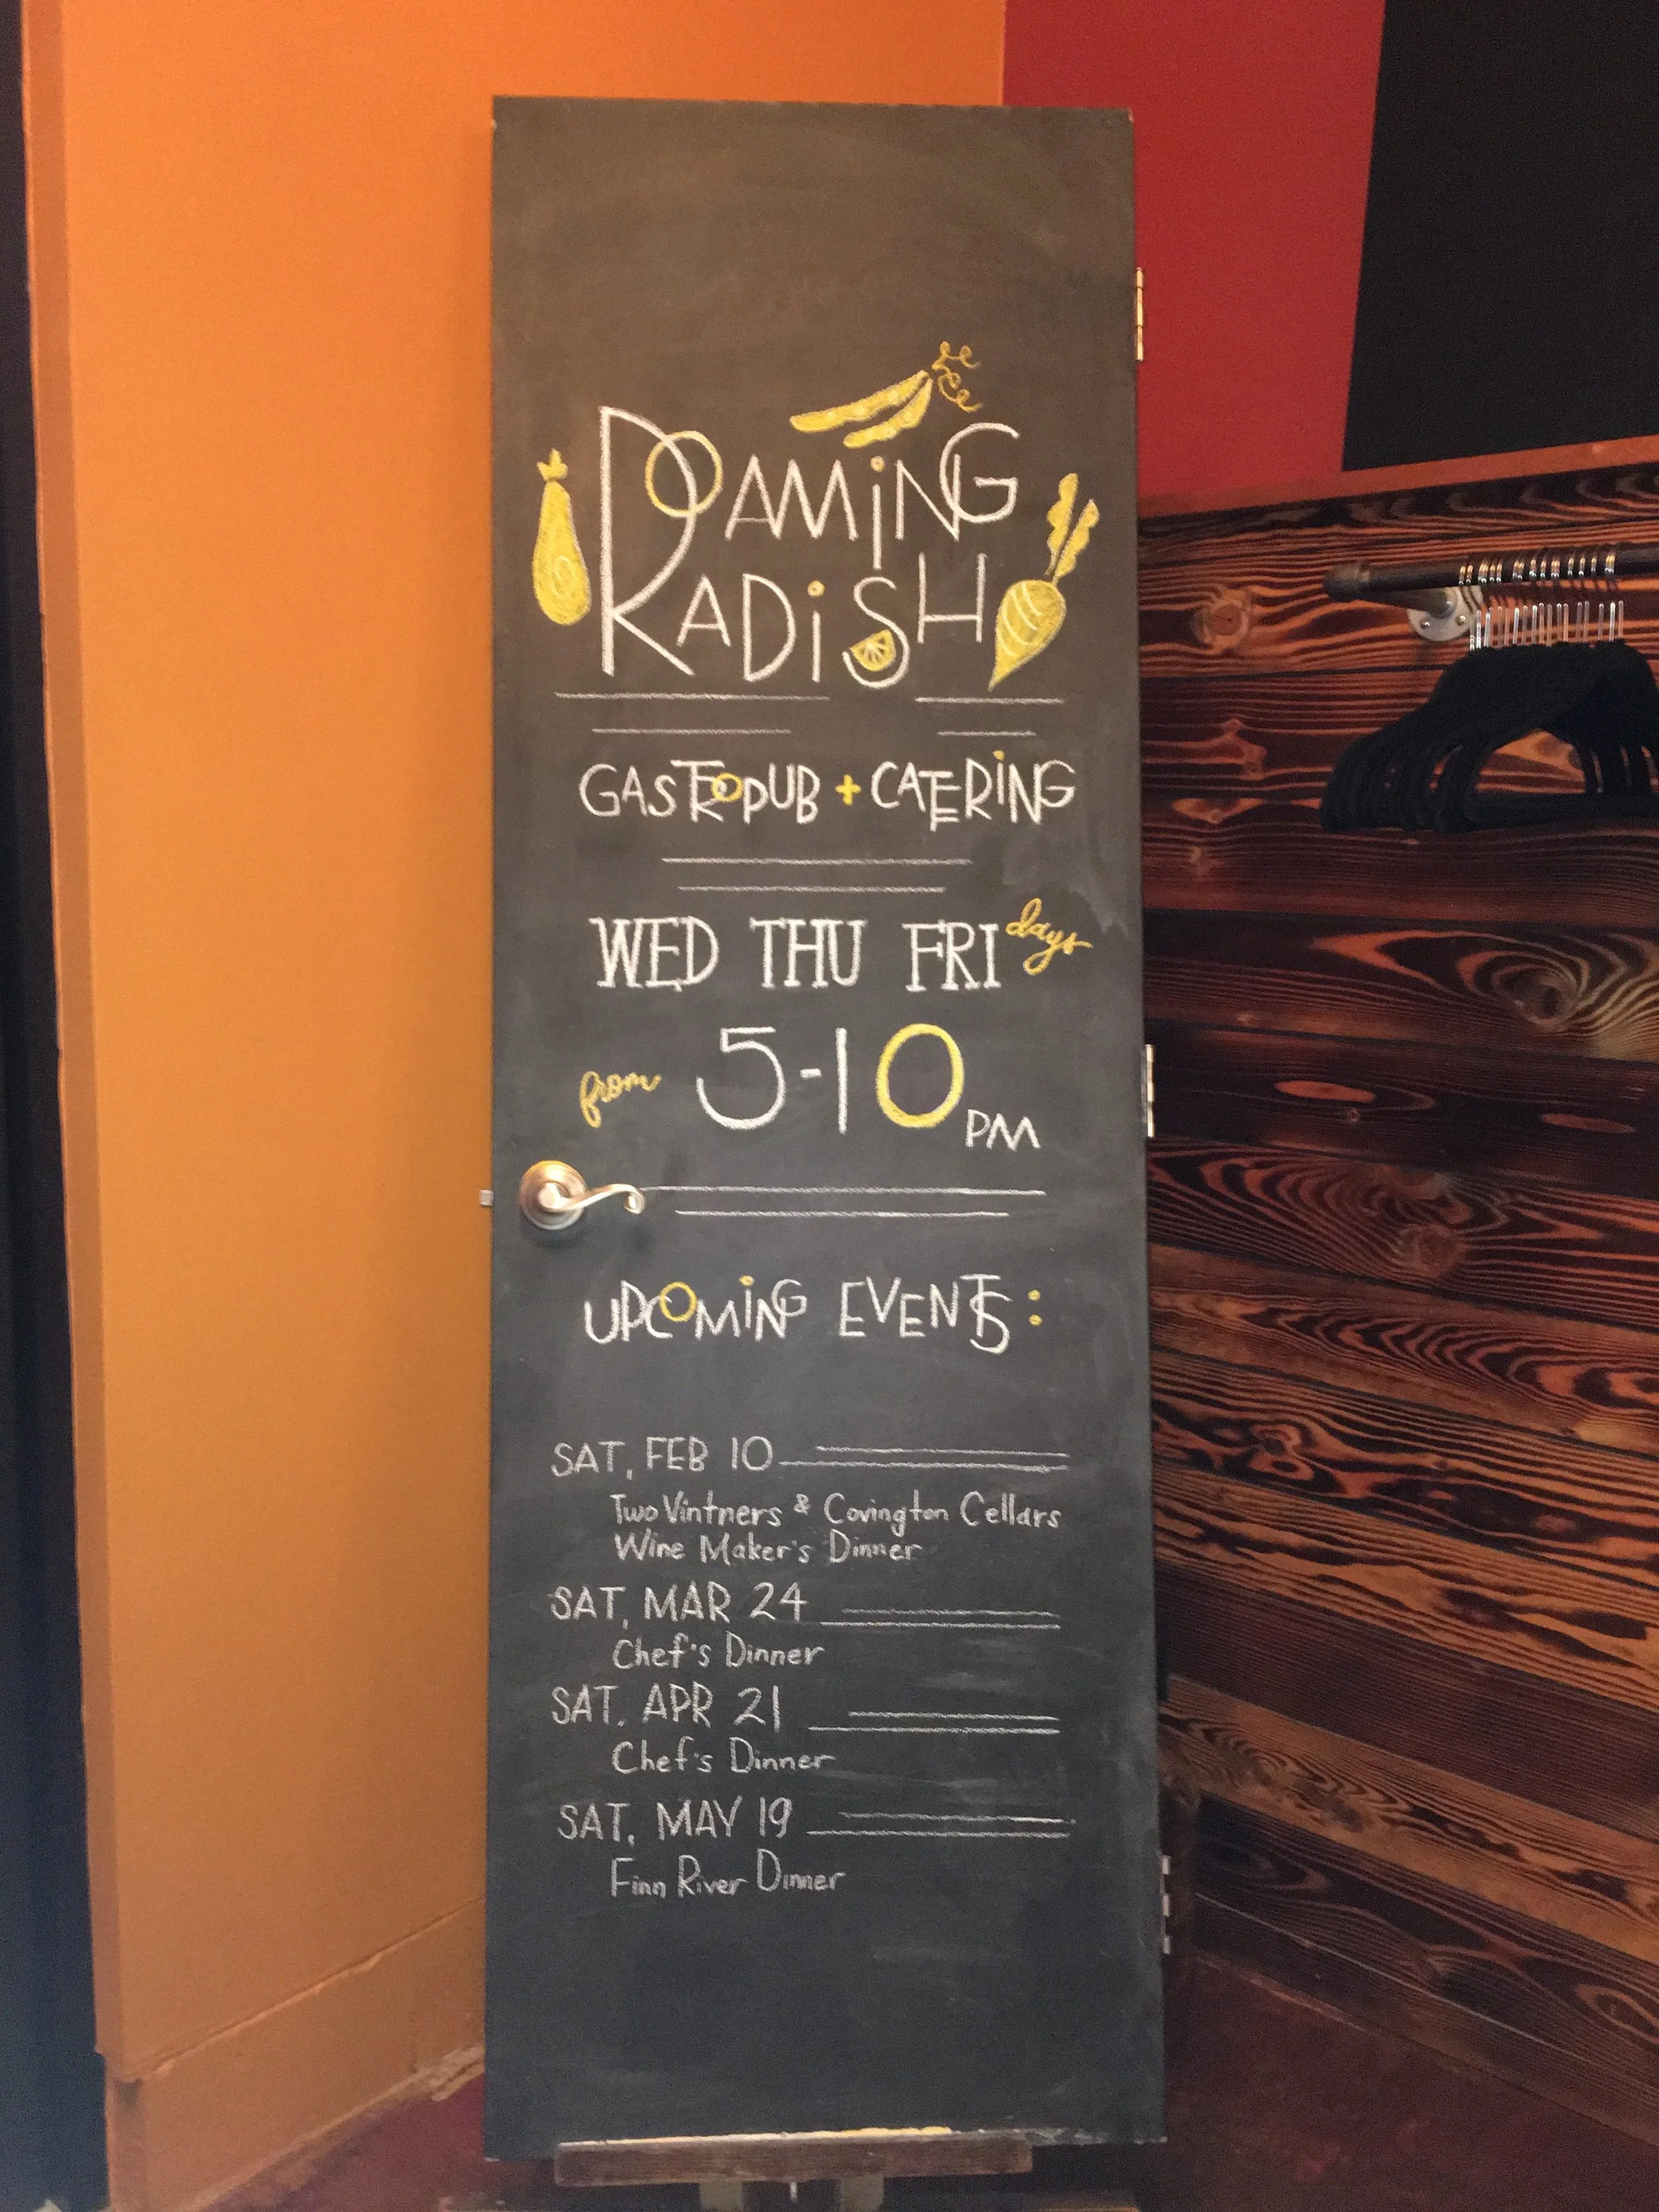 ROAMiNG
RADiSH
GASTROPUB + CATERiNG
WED THU FRI days
from 5-10 PM
UPCOMiNG EVENTS:
SAT, FEB 10
Two Vintners & Covington Cellars
Wine Maker's Dinner
SAT, MAR 24
Chef's Dinner
SAT, APR 21
Chef's Dinner
SAT, MAY 19
Finn River Dinner